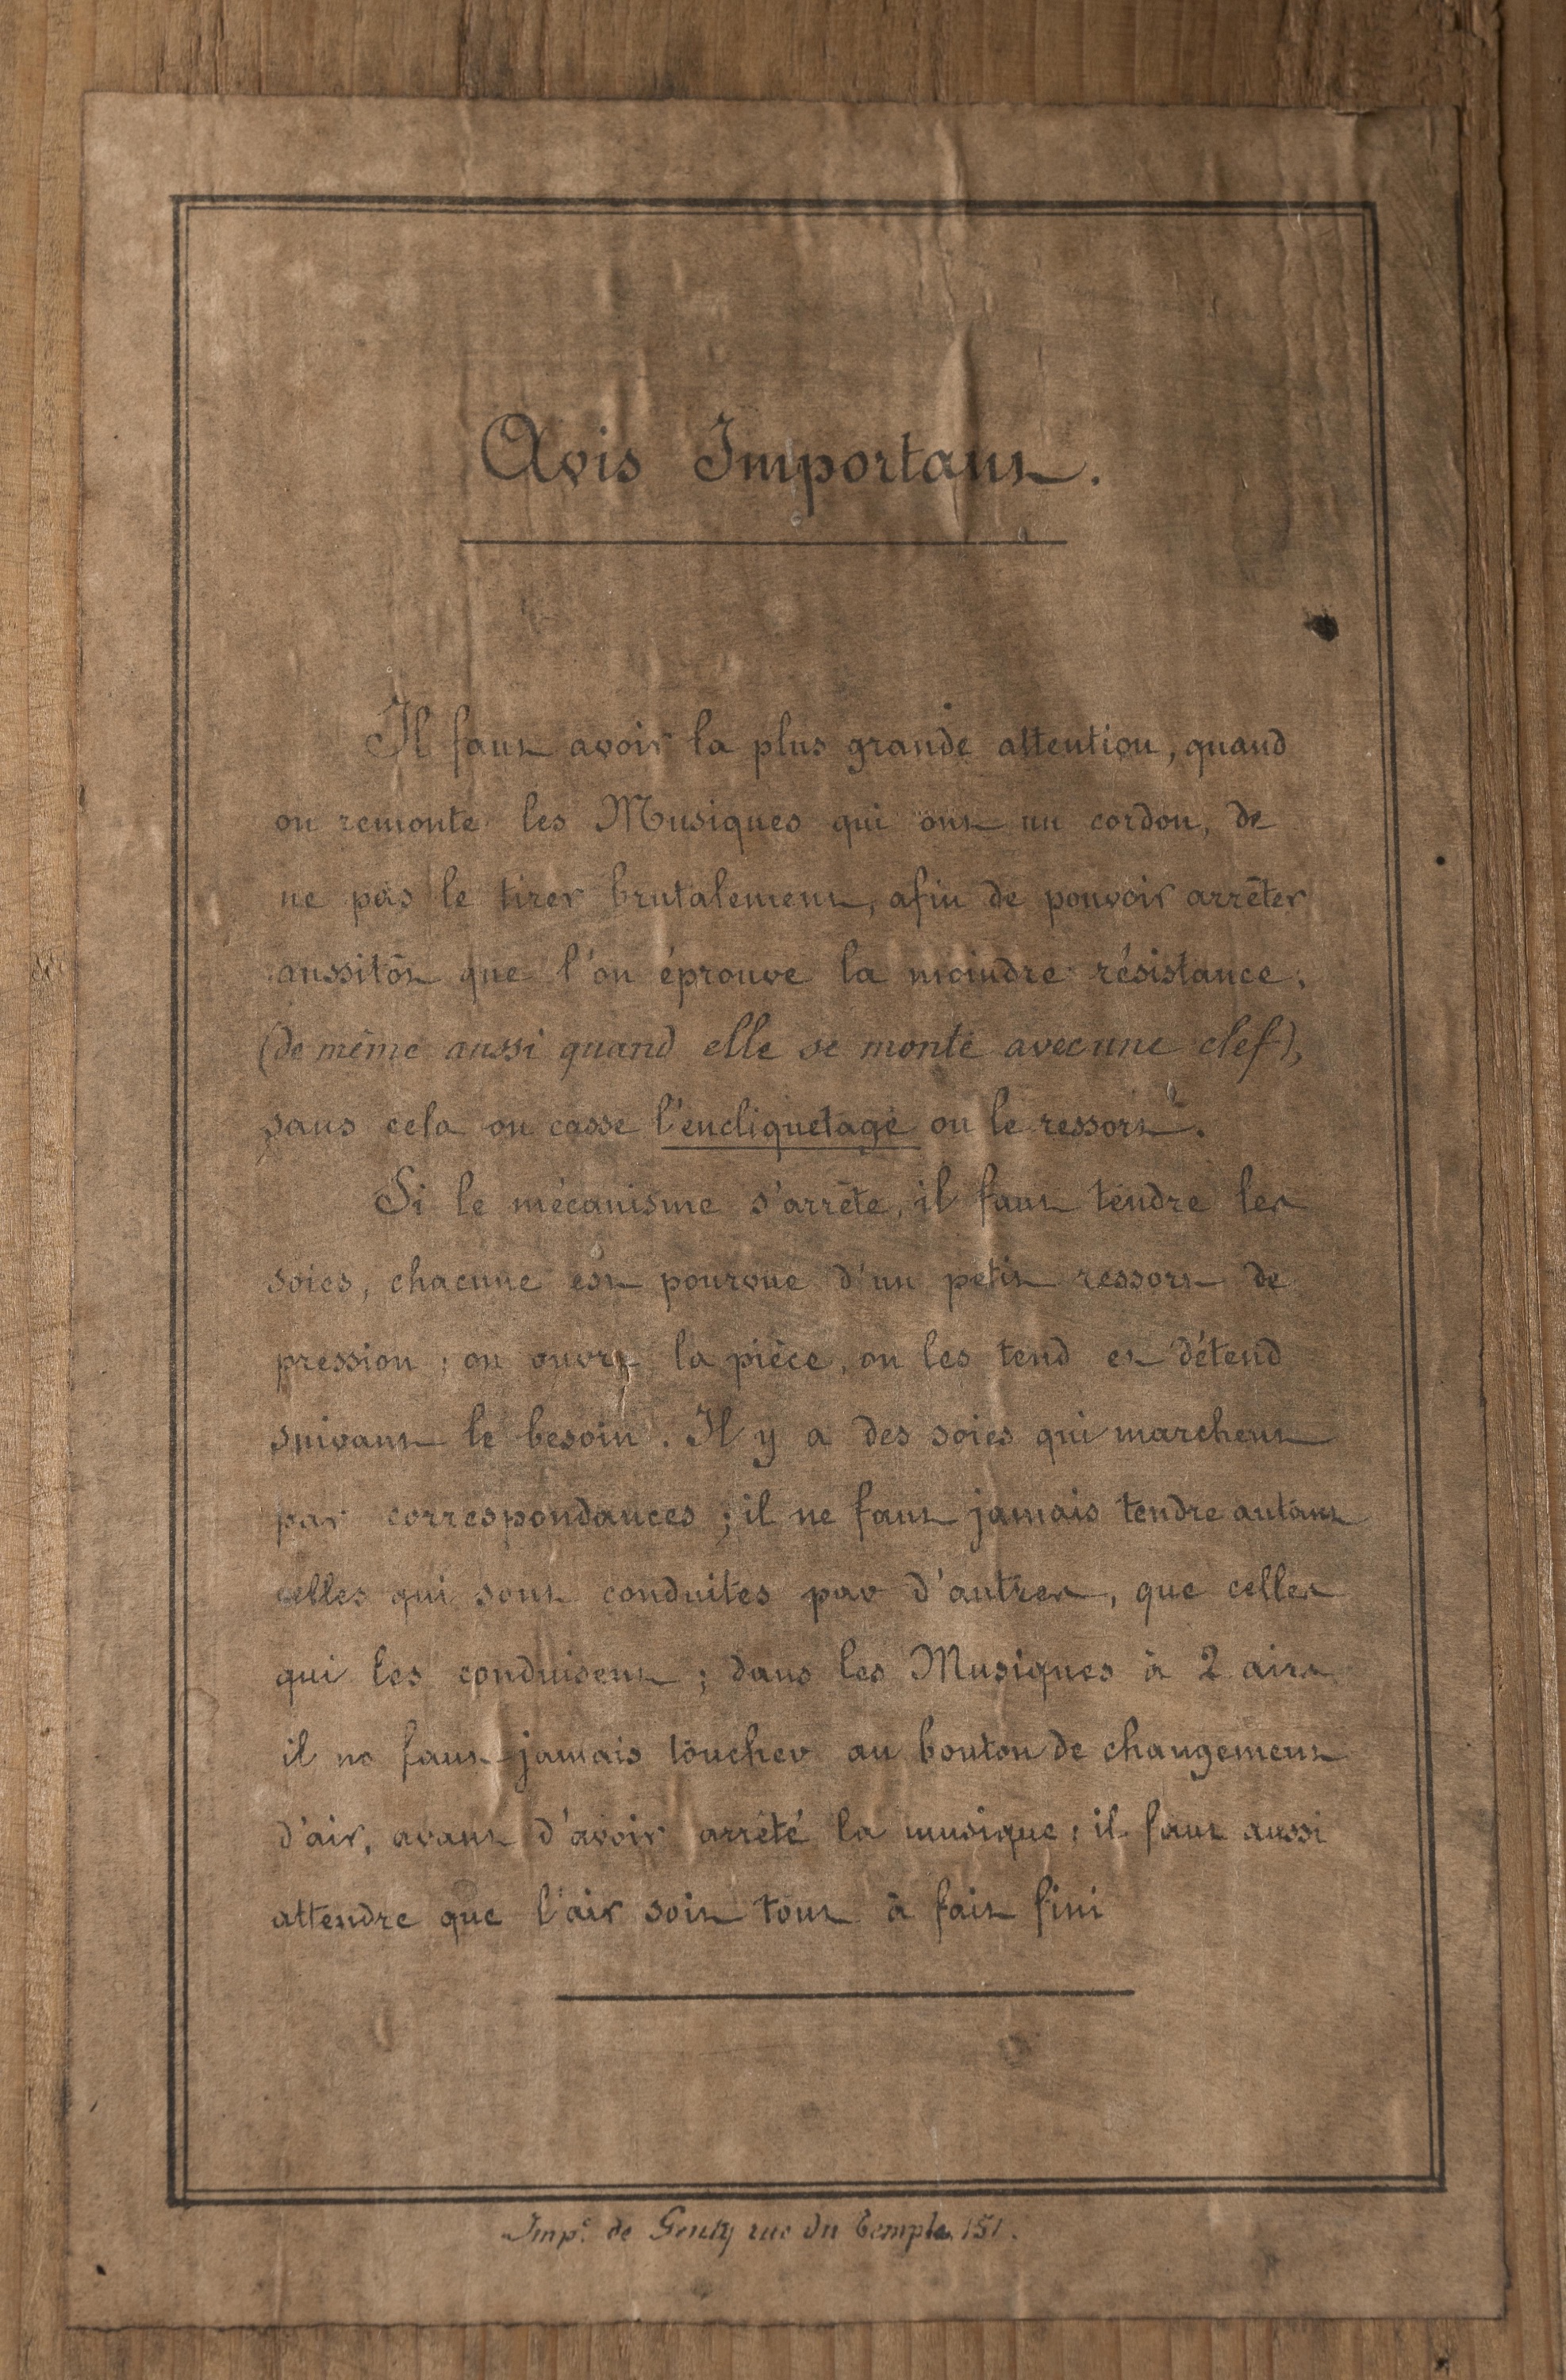 Avis Important.
Il faut avoir la plus grande attention, quand
on remonte les Musiques qui ont un cordon, de
ne pas le tirer brutalement, afin de pouvoir arrêter
aussitôt que l'on éprouve la moindre résistance,
(de même aussi quand elle se monte avec une clef),
sans cela on casse l'encliquetage ou le ressort.
Si le mécanisme s'arrête, il faut tendre les
soies, chacune est pourvue d'un petit ressort de
pression ; on ouvre la pièce, on les tend et détend
suivant le besoin. Il y a des soies qui marchent
par correspondances ; il ne faut jamais tendre autant
celles qui sont conduites par d'autres, que celles
qui les conduisent ; dans les Musiques à 2 airs
il ne faut jamais toucher au bouton de changement
d'air, avant d'avoir arrêté la musique ; il faut aussi
attendre que l'air soit tout à fait fini
Impe. de Genty rue du Temple, 151.